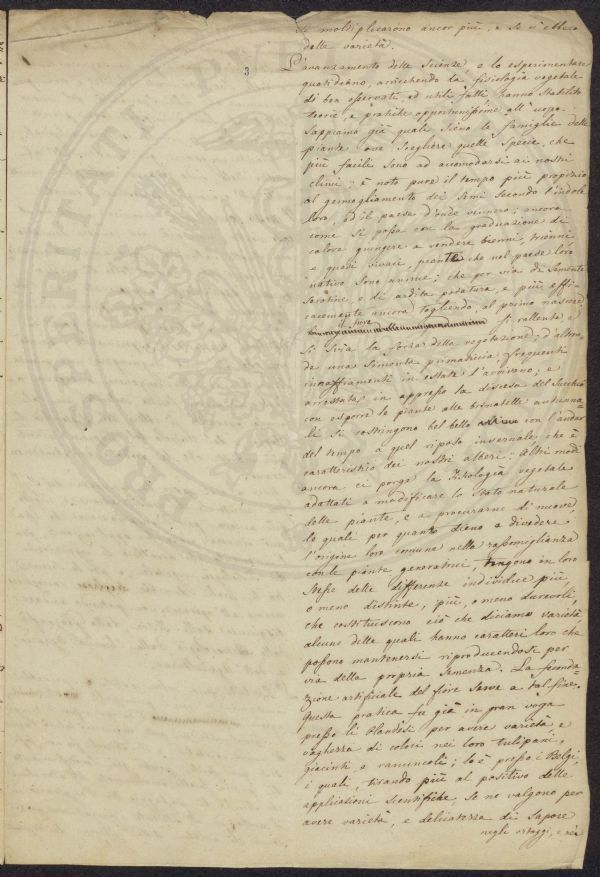 si moltiplicarono ancor più, e se n'ebbero
delle varietà.
3
L'avanzamento delle Scienze, e lo esperimentare
quotidiano, arricchendo la fisiologia vegetale
di ben osservati, ed utili fatti hanno stabilito
teorie, e pratiche opportunissime all'uopo.
Sappiamo già quali sieno le famiglie delle
piante ove scegliere quelle Specie, che
più facili sono ad accomodarsi ai nostri
climi; è noto pure il tempo più propizio
al germogliamento dei Semi secondo l'indole
loro, ed il paese d'onde vennero; ancora
come si possa con la graduazione di
calore giungere a rendere bienni, trienni
e quasi vivaci piante che nel paese loro
nativo sono annue: che per via di Semente
Serotine, e di ardita potatura, e più effi-
cacemente ancora togliendo, al primo nascere
si rallenta e
si svia la forza della vegetazione; d'altron-
de una Semente primaticcia, frequenti
innaffiamenti in estate l'avvivano; e
arrestata in appresso la discesa del Succhio
con esporre le piante alle brinatelle autunna-
li si costringono bel bello con l'andar
del tempo a quel riposo invernale che è
caratteristico dei nostri alberi: Altri modi
ancora ci porge la Fisiologia vegetale
adattati a modificare lo Stato naturale
delle piante, e a procurarne di nuove,
le quali per quanto dieno a divedere
l'origine loro comune nella rassomiglianza
con le piante generatrici, tengono in loro
stesse delle differenze individue più,
o meno distinte, più, o meno durevoli,
che costituiscono ciò che diciamo varietà,
alcune delle quali hanno caratteri loro che
possono mantenersi riproducendosi per
via della propria Semenza. La feconda-
zione artificiale del fiore serve a tal fine.
Questa pratica fu già in gran voga
presso li Olandesi per avere varietà e
vaghezza di colori nei loro tulipani,
giacinti e ranuncoli; lo è presso i Belgi,
i quali, tirando più al positivo delle
applicazioni scientifiche, se ne valgono per
avere varietà, e delicatezza di Sapore
negli ortaggi, e nei